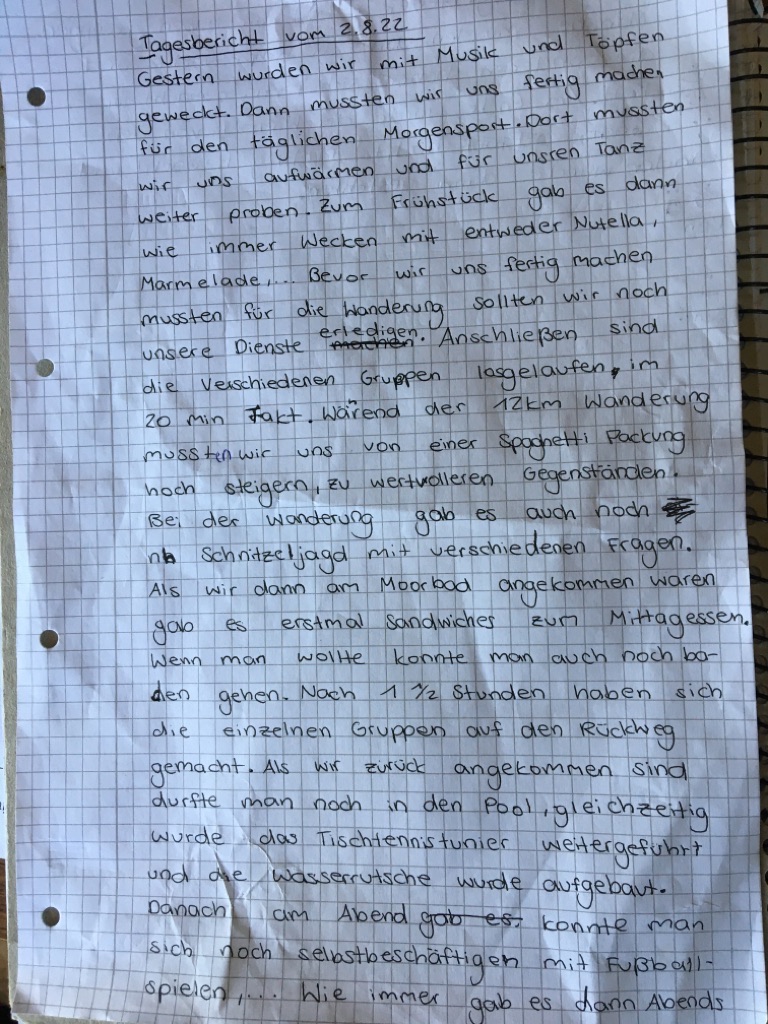 Tagesbericht vom 2.8.22
Gestern wurden wir mit Musik und Töpfen
geweckt. Dann mussten wir uns fertig machen
für den täglichen Morgensport. Dort mussten
wir uns aufwärmen und für unsren Tanz
weiter proben. Zum Frühstück gab es dann
wie immer Wecken mit entweder Nutella,
Marmelade,... Bevor wir uns fertig machen
mussten für die Wanderung sollten wir noch
unsere Dienste machen erledigen. Anschließen sind
die verschiedenen Gruppen losgelaufen, im
20 min Takt. Wärend der 12km Wanderung
mussten wir uns von einer Spaghetti Packung
hoch steigern, zu wertvolleren Gegenständen.
Bei der Wanderung gab es auch noch
ne Schnitzeljagd mit verschiedenen Fragen.
Als wir dann am Moorbad angekommen waren
gab es erstmal Sandwiches zum Mittagessen.
Wenn man wollte konnte man auch noch ba-
den gehen. Nach 1 1/2 Stunden haben sich
die einzelnen Gruppen auf den Rückweg
gemacht. Als wir zurück angekommen sind
durfte man noch in den Pool, gleichzeitig
wurde das Tischtennistunier weitergeführt
und die Wasserrutsche wurde aufgebaut.
Danach am Abend gab es, konnte man
sich noch selbstbeschäftigen mit Fußball-
spielen,... Wie immer gab es dann Abends